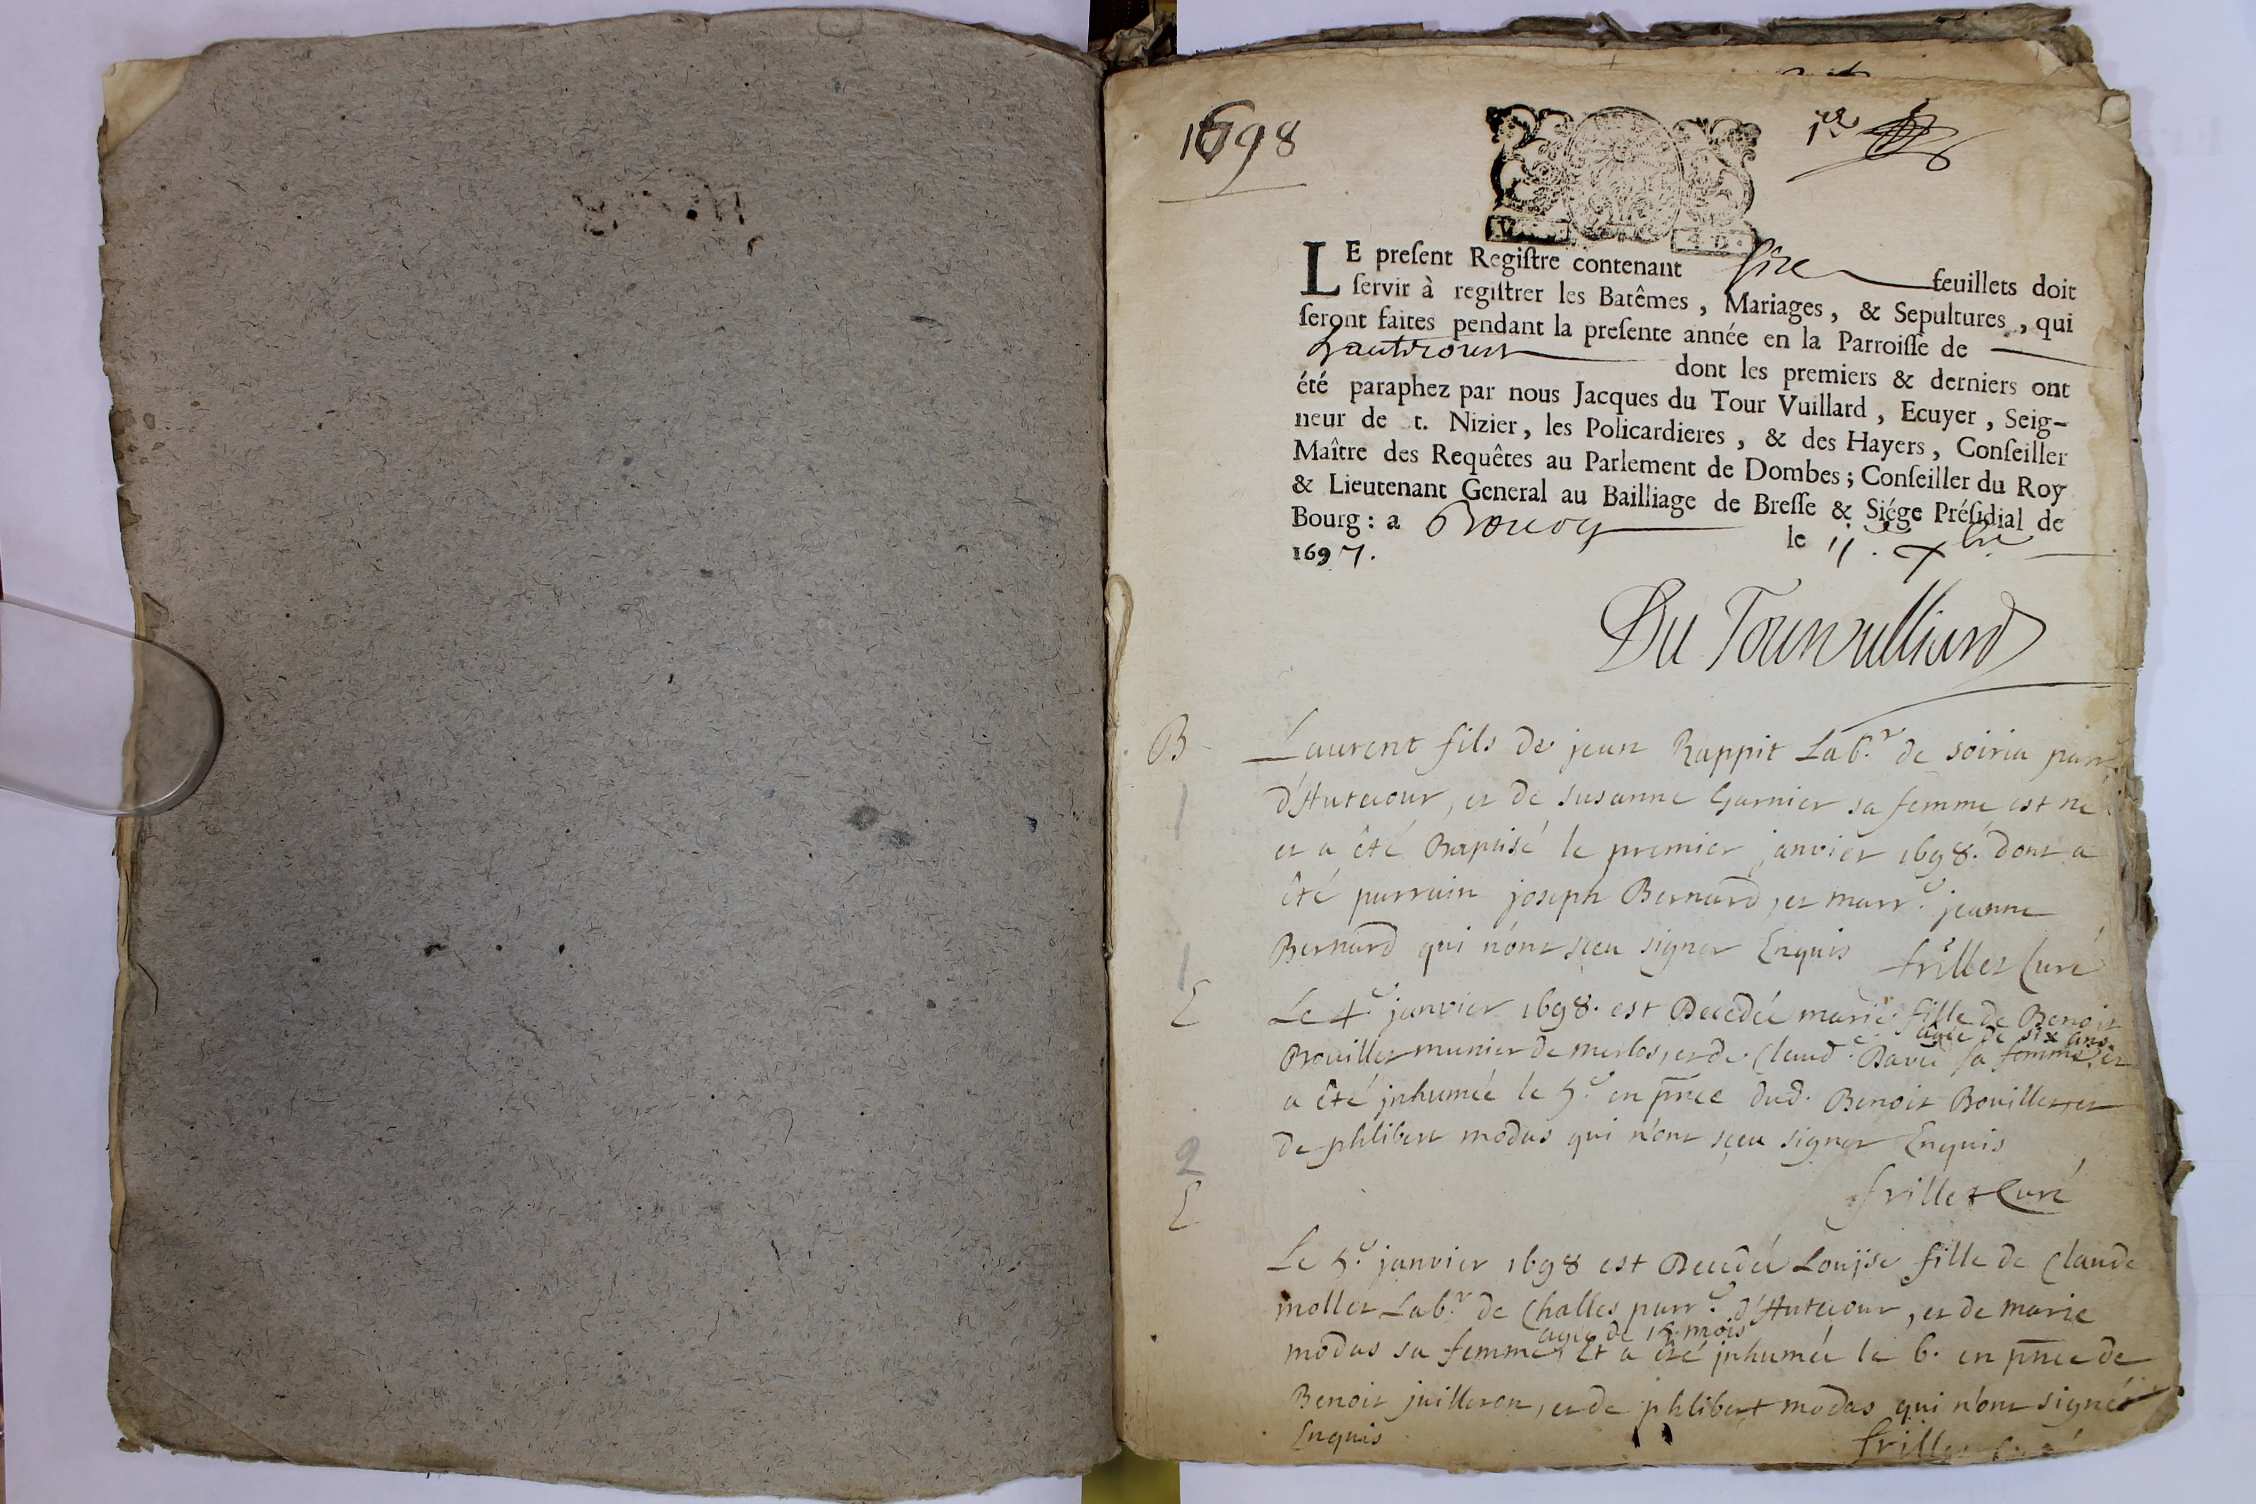 1698
1er
LE preſent Regiſtre contenant ſize feuillets doit
ſervir à regiſtrer les Batêmes, Mariages, & Sepultures, qui
ſeront faites pendant la preſente année en la Parroiſſe de
hautecourt dont les premiers & derniers ont
été paraphez par nous Jacques du Tour Vuillard, Ecuyer, Seig-
neur de t. Nizier, les Policardieres, & des Hayers, Conſeiller
Maître des Requêtes au Parlement de Dombes; Conſeiller du Roy
& Lieutenant General au Bailliage de Breſſe & Siége Préſidial de
Bourg: a Bourg le 11. xbre
1697.
Du Tourvulliard
B Laurent fils de jean Rappit Lab.r de soiria parr
1 d'Autecour, et de susanne Garnier sa femme est né
et a été Baptisé le premier janvier 1698. dont a
été parrain joseph Bernard, et marr.e jeanne
Bernard qui n'ont sçeu signer Enquis frillet Curé
1
E Le 4.e janvier 1698. est Decedée marie fille de Benoit
agée de six ans
Bouillet munier de merlos, et de Claud.e Bavu sa femme, et
a été jnhumée le 5.e en pnce dud. Benoit Bouillet, et
de phlibert modas qui n'ont sçeu signer Enquis
2
frillet Curé
E
Le 5.e janvier 1698 est Decedée Louyse fille de Claude
mollet Lab.r de Challes parr.e d'Autecour, et de marie
agée de 18 mois
modas sa femme, Et a été jnhumée le 6. en pnce de
Benoit juilleron, et de phlibert modas qui n'ont signés
Enquis frillet Curé